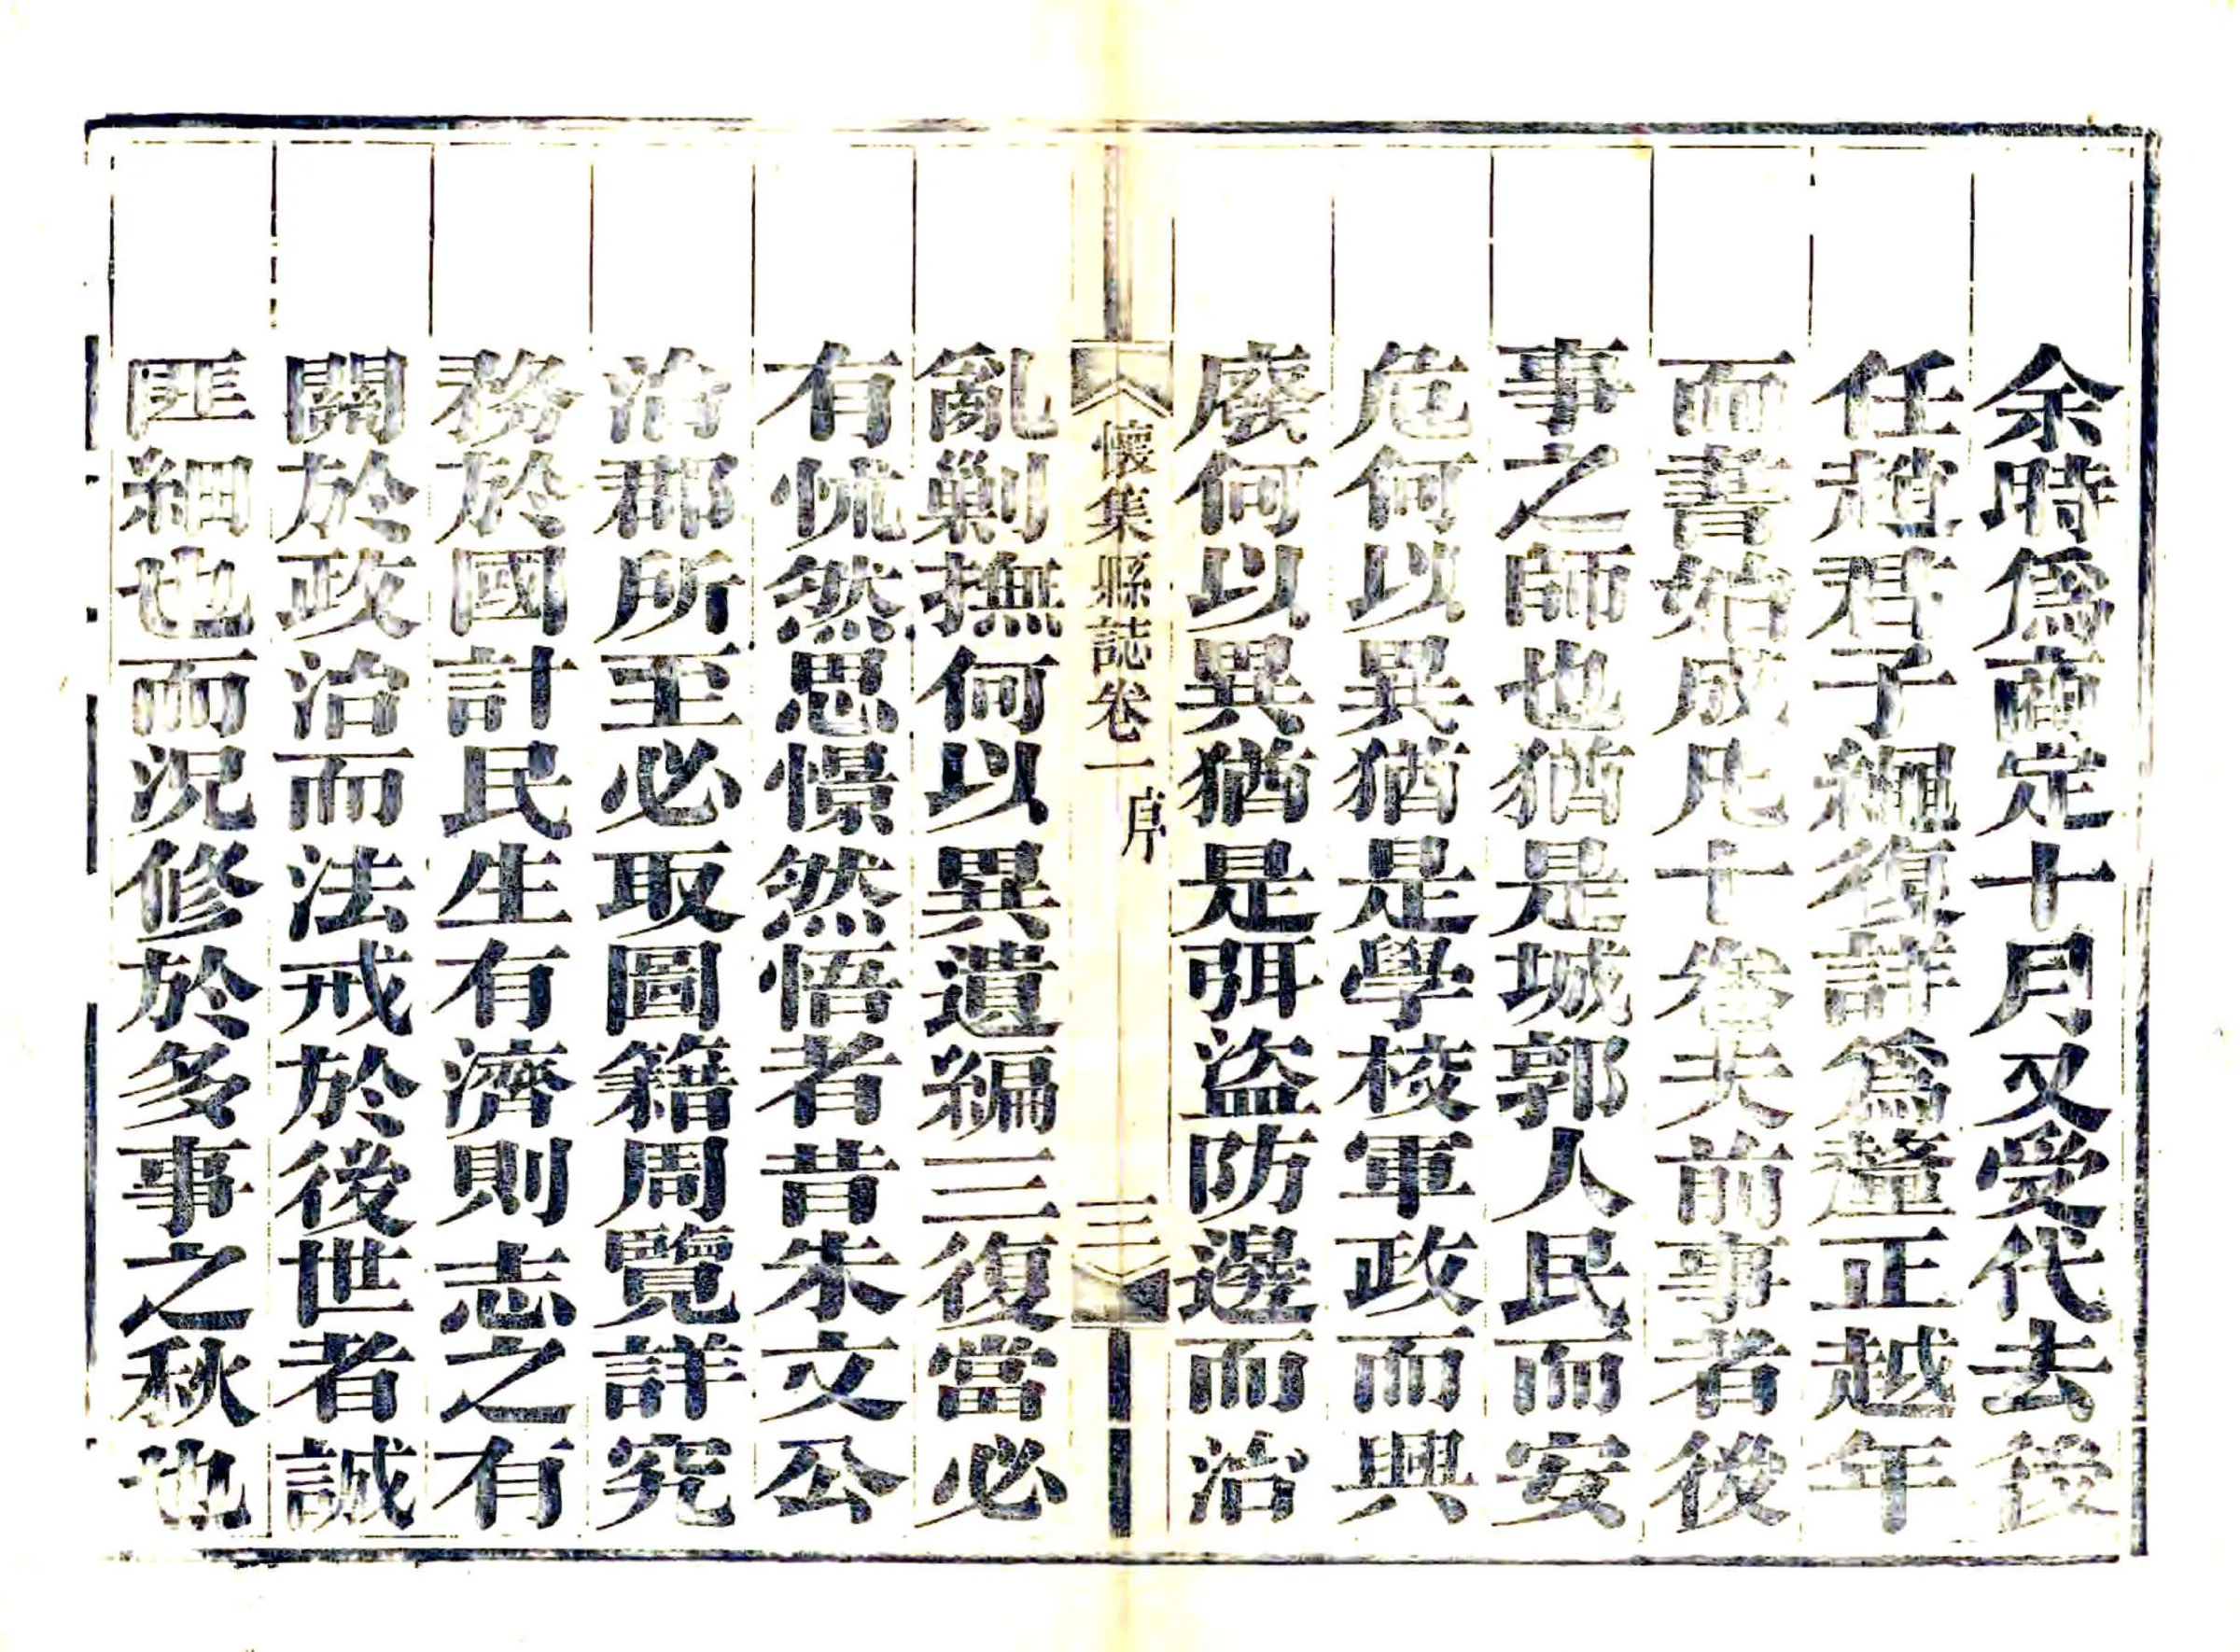 余時爲商定十月又受代去後
任趙君子繩復詳爲釐正越年
而書始成凡十卷夫前事者後
事之師也猶是城郭人民而安
危何以異猶是學校軍政而興
廢何以異猶是弭盜防邊而治
懷集縣誌卷一 序 三
亂剿撫何以異遺編三復當必
有怵然思憬然悟者昔朱文公
治郡所至必取圖籍周覽詳究
務於國計民生有濟則志之有
關於政治而法戒於後世者誠
匪細也而況修於多事之秋也